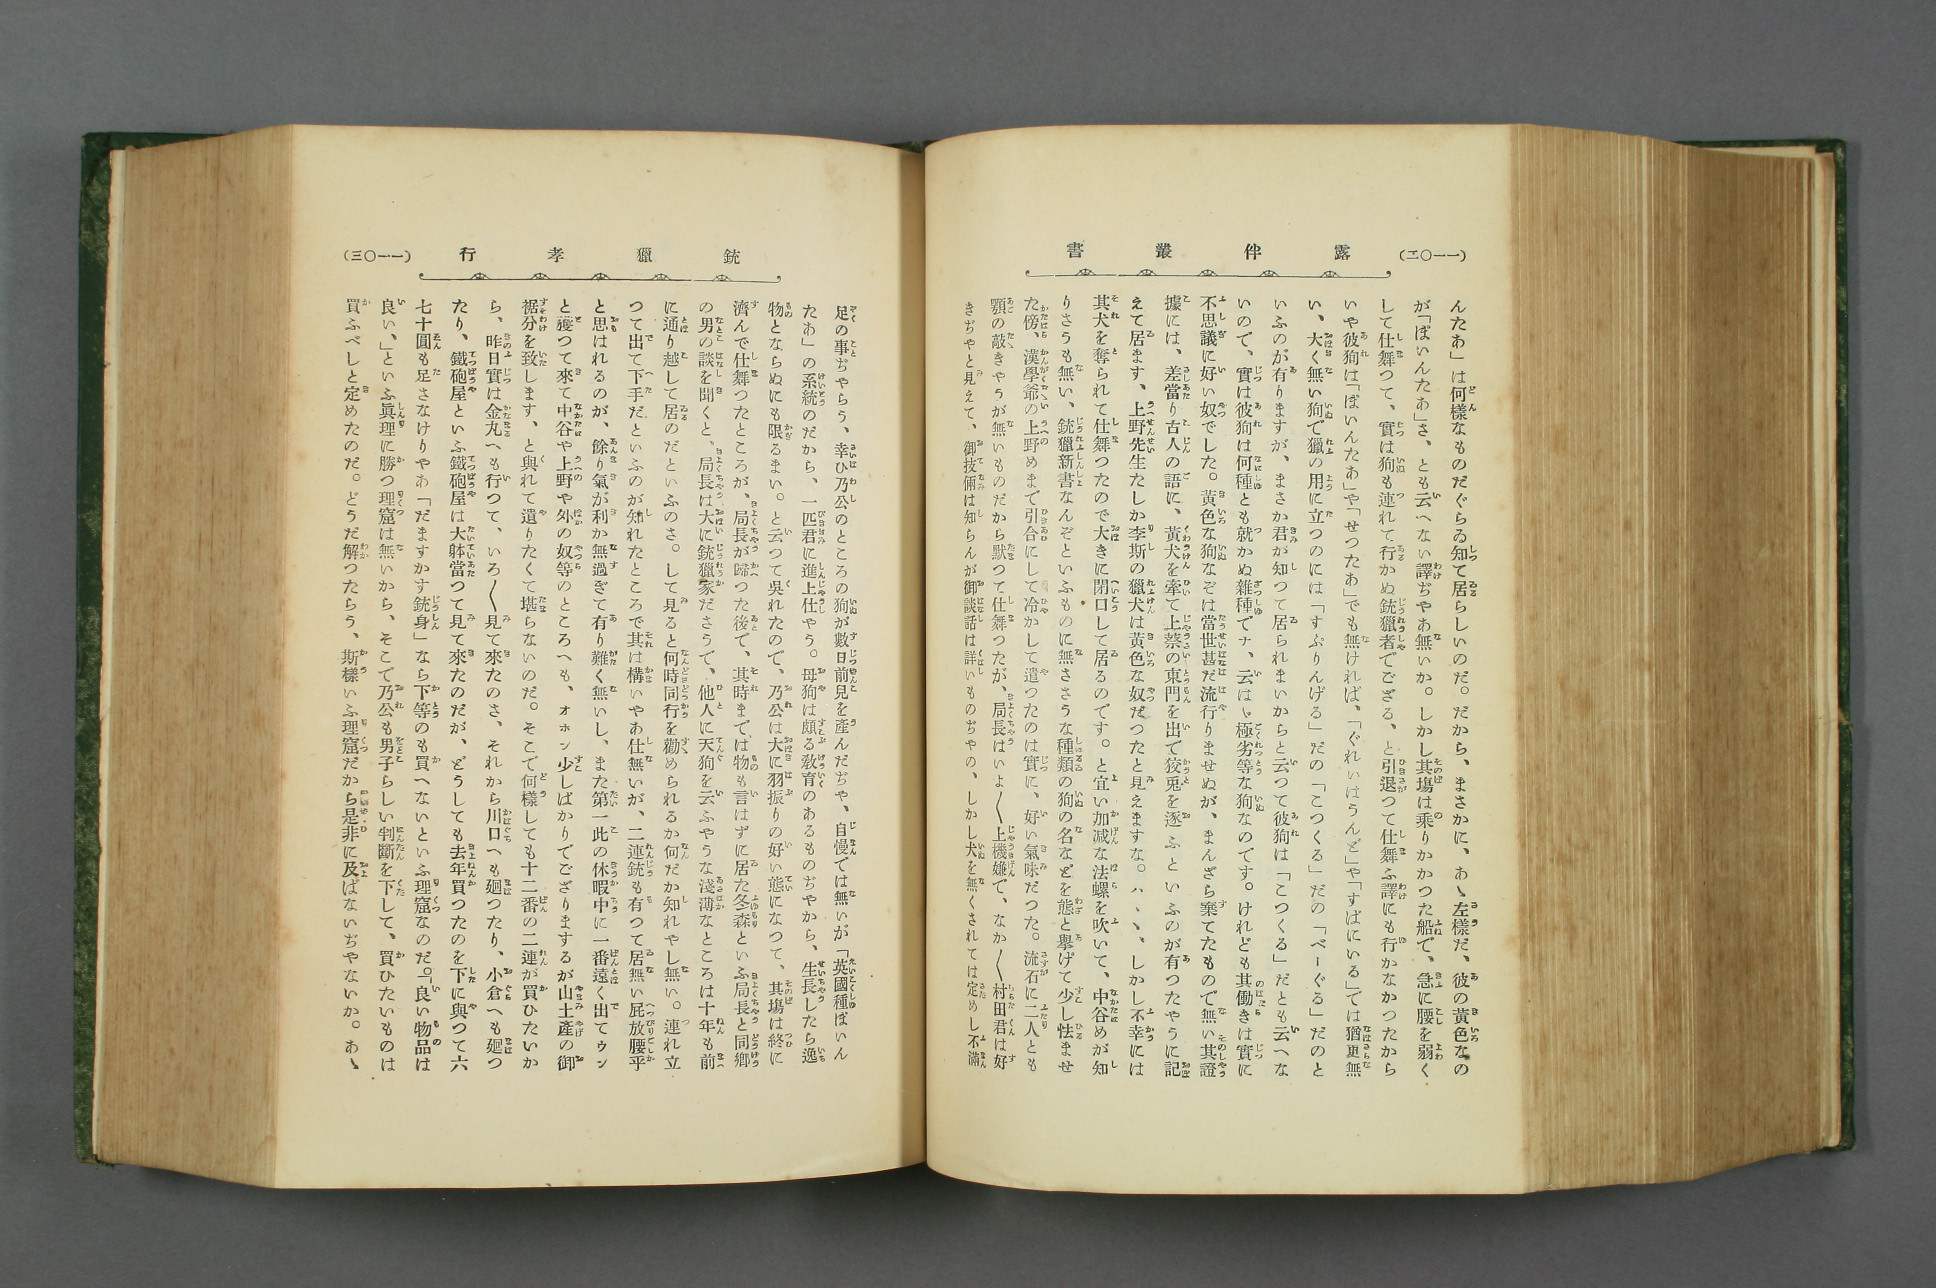 (一一〇二)
露伴叢書
んたあ」は何樣なものだぐらゐ知つて居らしいのだ。だから、まさかに、あゝ左樣だ、彼の黃色なの
が「ぽいんたあ」さ、とも云へない譯ぢやあ無いか。しかし其塲は乘りかかつた船で、急に腰を弱く
して仕舞つて、實は狗も連れて行かぬ銃獵者でござる、と引退つて仕舞ふ譯にも行かなかつたから
いや彼狗は「ぽいんたあ」や「せつたあ」でも無ければ、「ぐれいはうんど」や「すぱにいる」では猶更無
い、大く無い狗で獵の用に立つのには「すぷりんげる」だの「こつくる」だの「べーぐる」だのと
いふのが有りますが、まさか君が知つて居られまいからと云つて彼狗は「こつくる」だとも云へな
いので、實は彼狗は何種とも就かぬ雜種でナ、云はゞ極劣等な狗なのです。けれども其働きは實に
不思議に好い奴でした。黃色な狗なぞは當世甚だ流行りませぬが、まんざら棄てたもので無い其證
據には、差當り古人の語に、黃犬を牽て上蔡の東門を出で狡兎を逐ふといふのが有つたやうに記
えて居ます、上野先生たしか李斯の獵犬は黃色な奴だつたと見えますな。ハヽヽ、しかし不幸には
其犬を奪られて仕舞つたので大きに閉口して居るのです。と宜い加减な法螺を吹いて、中谷めが知
りさうも無い、銃獵新書なんぞといふものに無ささうな種類の狗の名などを態と擧げて少し怯ませ
た傍、漢學爺の上野めまで引合にして冷かして遣つたのは實に、好い氣味だつた。流石に二人とも
顎の敲きやうが無いものだから默つて仕舞つたが、局長はいよ〱上機嫌で、なか〱村田君は好
きぢやと見えて、御技倆は知らんが御談話は詳いものぢやの、しかし犬を無くされては定めし不滿
(一一〇三)
銃獵孝行
足の事ぢやらう、幸ひ乃公のところの狗が數日前兒を產んだぢや、自慢では無いが「英國種ぽいん
たあ」の系統のだから、一匹君に進上仕やう。母狗は頗る敎育のあるものぢやから、生長したら逸
物とならぬにも限るまい。と云つて吳れたので、乃公は大に羽振りの好い態になつて、其塲は終に
濟んで仕舞つたところが、局長が歸つた後で、其時までは物も言はずに居た冬森といふ局長と同鄕
の男の談を聞くと、局長は大に銃獵家ださうで、他人に天狗を云ふやうな淺薄なところは十年も前
に通り越して居のだといふのさ。して見ると何時同行を勸められるか何だか知れやし無い。連れ立
つて出て下手だといふのが知れたところで其は構いやあ仕無いが、二連銃も有つて居無い屁放腰乎
と思はれるのが、餘り氣が利か無過ぎて有り難く無いし、また第一此の休暇中に一番遠く出てウン
と獲つて來て中谷や上野や外の奴等のところへも、オホン少しばかりでござりまするが山土產の御
裾分を致します、と與れて遣りたくて堪らないのだ。そこで何樣しても十二番の二連が買ひたいか
ら、昨日實は金丸へも行つて、いろ〱見て來たのさ、それから川口へも廻つたり、小倉へも廻つ
たり、鐵砲屋といふ鐵砲屋は大躰當つて見て來たのだが、どうしても去年買つたのを下に與つて六
七十圓も足さなけりやあ「だますかす銃身」なら下等のも買へないといふ理窟なのだ。「良い物品は
良い、」といふ眞理に勝つ理窟は無いから、そこで乃公も男子らしい判斷を下して、買ひたいものは
買ふべしと定めたのだ。どうだ解つたらう、斯樣いふ理窟だから是非に及ばないぢやないか。あゝ